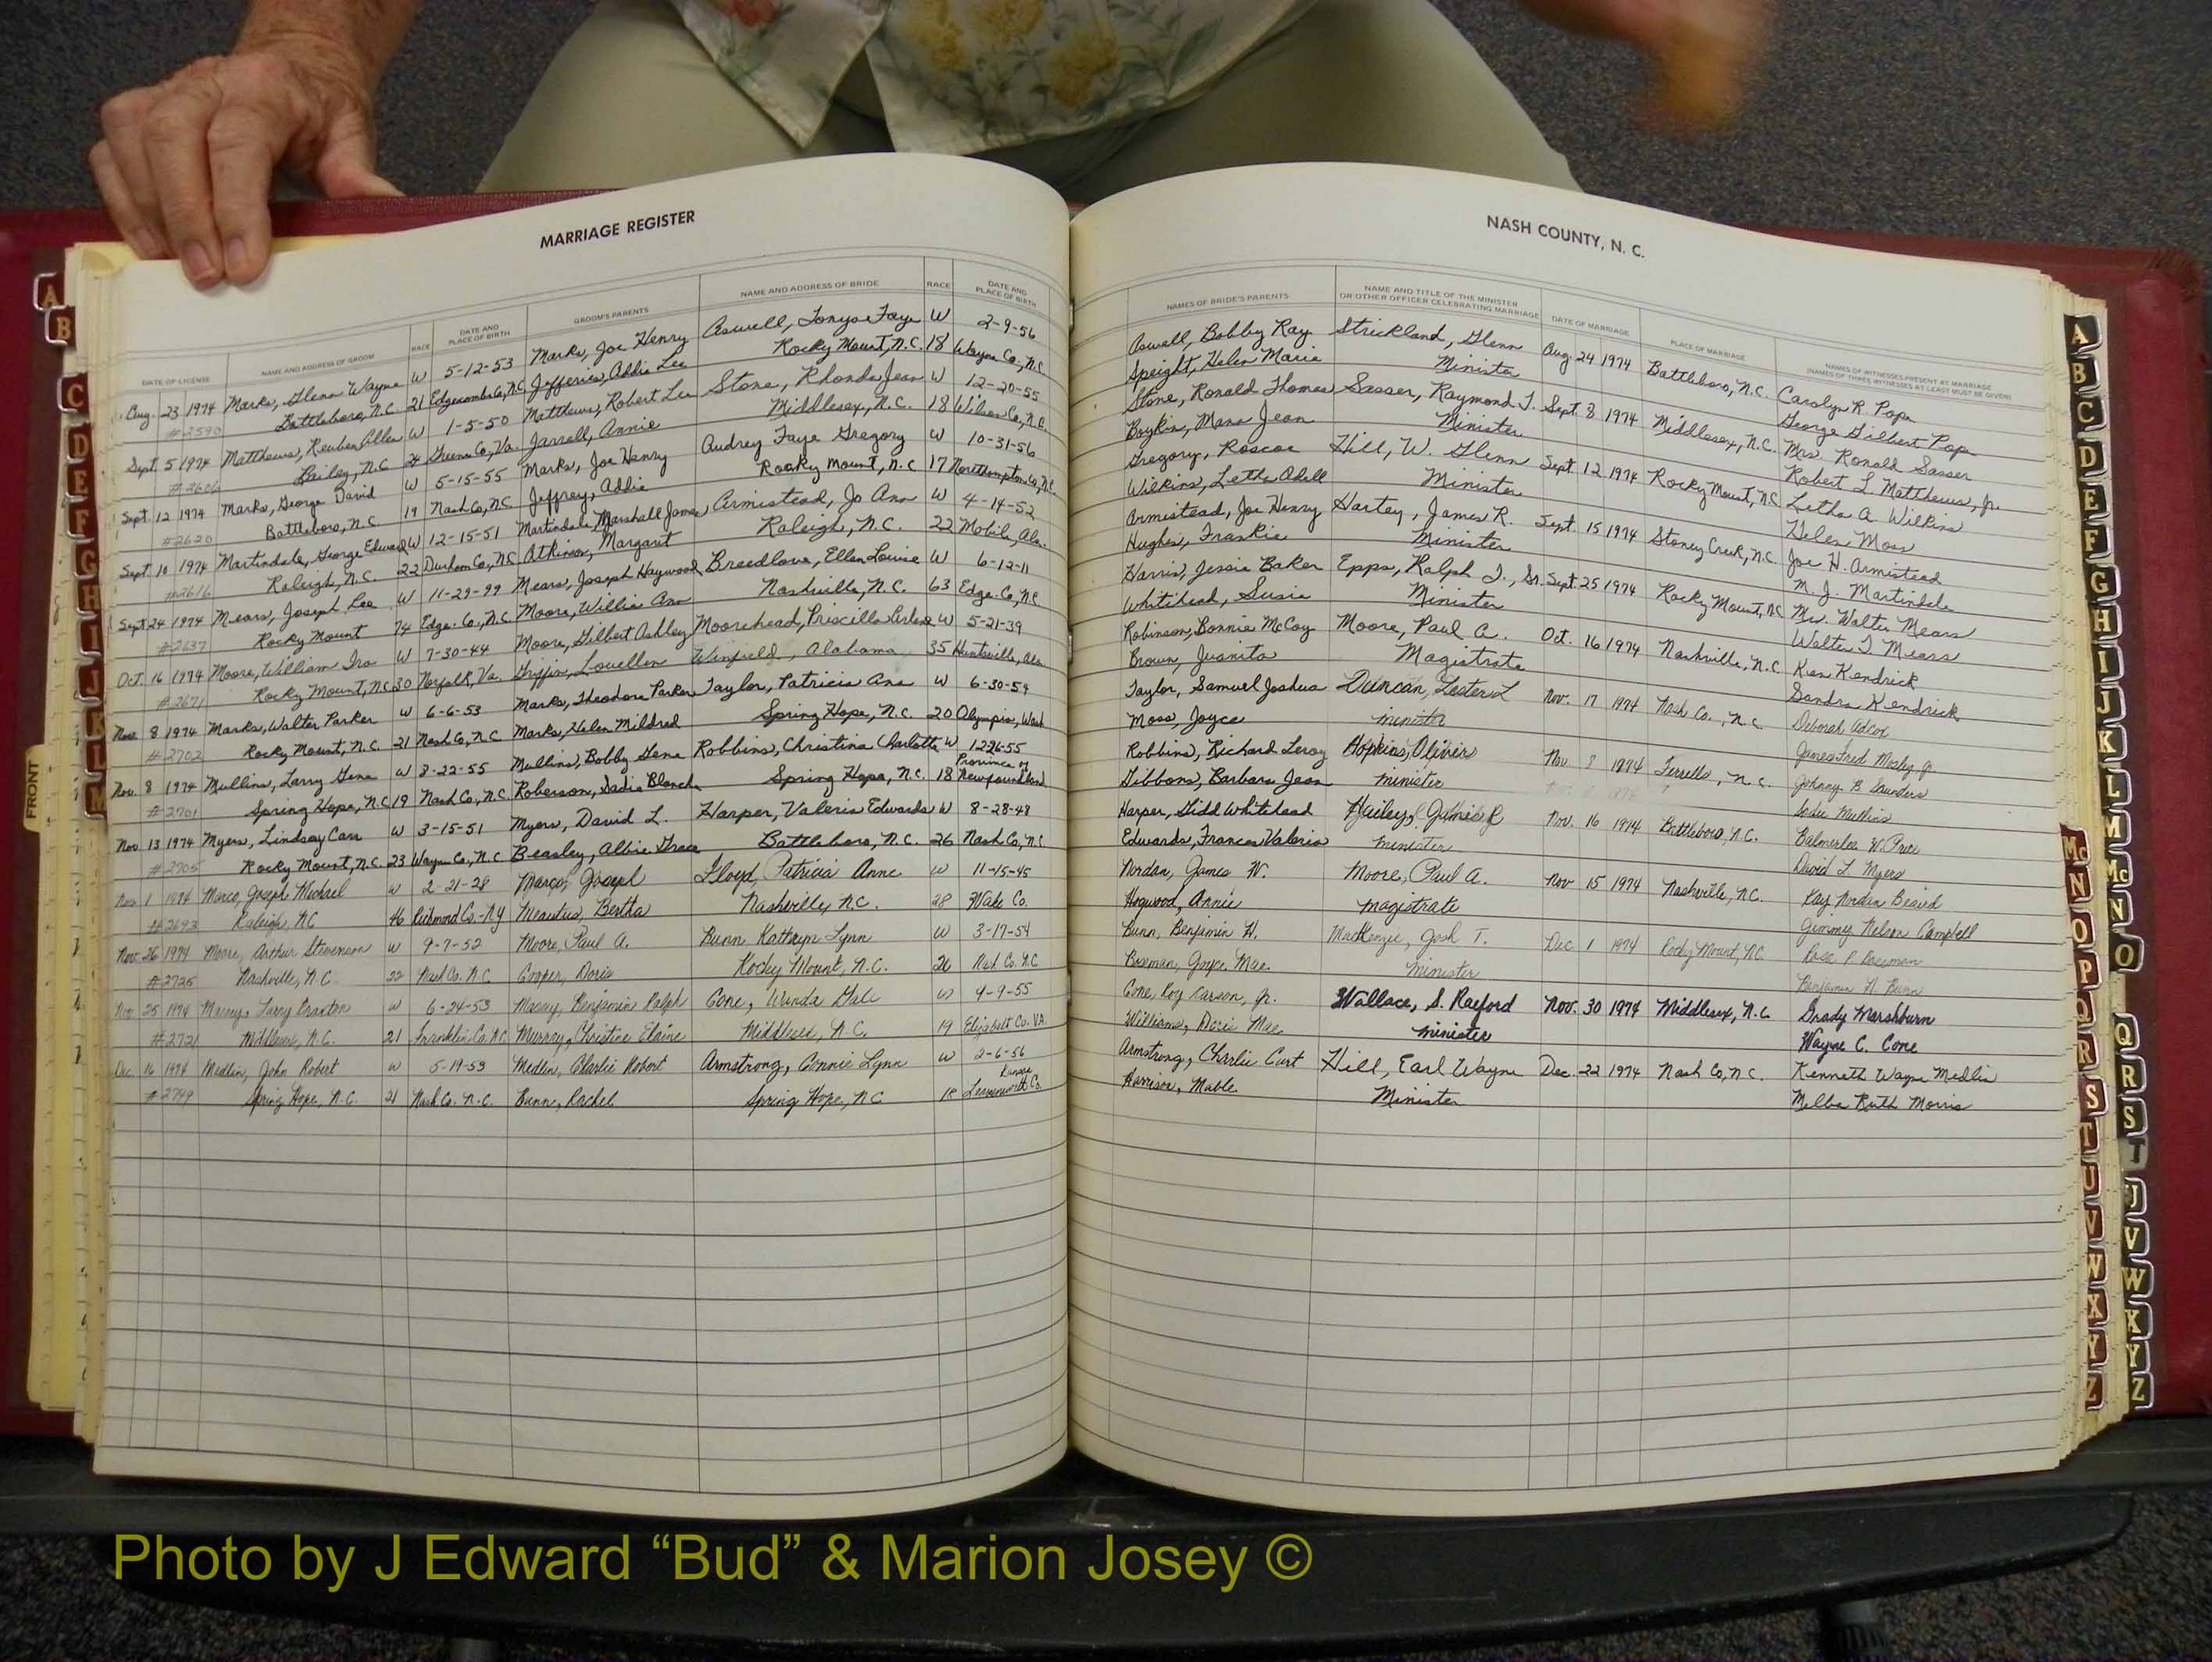 MARRIAGE REGISTER
DATE OF LICENSE NAME AND ADDRESS OF GROOM RACE DATE AND PLACE OF BIRTH GROOM'S PARENTS NAME AND ADDRESS OF BRIDE RACE DATE AND PLACE OF BIRTH
Aug. 23 1974 Marks, Glenn Wayne W 5-12-53 Marks, Joe Henry Aswell, Tonya Faye W 2-9-56
#2590 Battleboro, N.C. 21 Edgecombe Co, N.C. Jefferies, Addie Lee Rocky Mount, N.C. 18 Wayne Co., N.C.
Sept. 5 1974 Matthews, Reuben Allen W 1-5-50 Matthews, Robert Lee Stone, Rhonda Jean W 12-20-55
#2606 Bailey, N.C. 24 Greene Co, Va. Jarrell, Annie Middlesex, N.C. 18 Wilson Co, N.C.
Sept. 12 1974 Marks, George David W 5-15-55 Marks, Joe Henry Audrey Faye Gregory W 10-31-56
#2620 Battleboro, N.C. 19 Nash Co, N.C. Jeffrey, Addie Rocky Mount, N.C 17 Northampton Co, N.C.
Sept. 10 1974 Martindale, George Edward W 12-15-51 Martindale, Marshall James Armistead, Jo Ann W 4-14-52
#2616 Raleigh, N.C. 22 Durham Co, N.C. Atkinson, Margaret Raleigh, N.C. 22 Mobile, Ala.
Sept. 24 1974 Mears, Joseph Lee W 11-29-99 Mears, Joseph Haywood Breedlove, Ellen Louise W 6-12-11
#2637 Rocky Mount 74 Edge. Co., N.C. Moore, Willie Ann Nashville, N.C. 63 Edge. Co, N.C.
Oct. 16 1974 Moore, William Ira W 7-30-44 Moore, Gilbert Ashley Moorehead, Priscilla W 5-21-39
#2671 Rocky Mount, N.C. 30 Norfolk, Va. Griffin, Louellen Winfield, Alabama 35 Huntsville, Ala
Nov. 8 1974 Marks, Walter Parker W 6-6-53 Marks, Theodore Parker Taylor, Patricia Ann W 6-30-54
#2702 Rocky Mount, N.C. 21 Nash Co, N.C. Marks, Helen Mildred Spring Hope, N.C. 20 Olympia, Wash
Nov. 8 1974 Mullins, Larry Gene W 8-22-55 Mullins, Bobby Gene Robbins, Christina Charlotte W 12-26-55
#2701 Spring Hope, N.C 19 Nash Co, N.C. Roberson, Sadie Blanch Spring Hope, N.C. 18 Province of Newfoundland
Nov. 13 1974 Myers, Lindsay Carr W 3-15-51 Myers, David L. Harper, Valeria Edwards W 8-28-48
#2705 Rocky Mount, N.C. 23 Wayne Co, N.C. Beasley, Albie Grace Battleboro, N.C. 26 Nash Co, N.C
Nov. 1 1974 Marco, Joseph Michael W 2-21-28 Marco, Joseph Lloyd, Patricia Anne W 11-15-45
#2693 Raleigh, NC 46 Richmond Co.-NY Meautus, Bertha Nashville, N.C. 28 Wake Co.
Nov. 26 1974 Moore, Arthur Stevenson W 9-7-52 Moore, Paul A. Bunn Kathryn Lynn W 3-17-54
#2725 Nashville, N.C. 22 Nash Co. N.C. Cooper, Doris Rocky Mount, N.C. 20 Nash Co. N.C
Nov. 25 1974 Larry Braxton W 6-24-53 Benjamin Ralph Cone, Wanda Gale W 9-9-55
#2721 Middlesex, N.C. 21 Franklin Co. N.C. Murray, Christine Elaine Middlesex, N.C. 19 Elizabeth Co. VA.
Dec. 16 1974 Medlin, John Robert W 5-19-53 Medlin, Charlie Robert Armstrong, Connie Lynn W 2-6-56
#2749 Spring Hope, N.C. 21 Nash Co. N.C. Bunn, Rachel Spring Hope, NC 18 Kansas Leavenworth Co.
NASH COUNTY, N. C.
NAMES OF BRIDE'S PARENTS NAME AND TITLE OF THE MINISTER OR OTHER OFFICER CELEBRATING MARRIAGE DATE OF MARRIAGE PLACE OF MARRIAGE NAMES OF WITNESSES PRESENT AT MARRIAGE (NAMES OF THREE WITNESSES AT LEAST MUST BE GIVEN)
Aswell, Bobby Ray Strickland, Glenn Aug. 24 1974 Battleboro, N.C. Carolyn R. Pope
Speight, Helen Marie Minister George Gilbert Pope
Stone, Ronald Thomas Sasser, Raymond T. Sept. 8 1974 Middlesex, N.C. Mrs. Ronald Sasser
Boykin, Mona Jean Minister Robert L. Matthews, Jr.
Gregory, Roscoe Hill, W. Glenn Sept. 12 1974 Rocky Mount, N.C. Letha A. Wilkins
Wilkins, Letha Adell Minister Helen Moss
Armistead, Joe Henry Hartey, James R. Sept. 15 1974 Stoney Creek, N.C. Joe H. Armistead
Hughes, Frankie Minister M. J. Martindale
Harris, Jessie Baker Epps, Ralph J., Sr. Sept. 25 1974 Rocky Mount, N.C. Mrs. Walter Mears
Whitehead, Susie Minister Walter T. Mears
Robinson, Bonnie McCoy Moore, Paul A. Oct. 16 1974 Nashville, N.C. Ken Kendrick
Brown, Juanita Magistrate Sandra Kendrick
Taylor, Samuel Joshua Duncan, Lester L Nov. 17 1974 Nash Co., N.C. Deborah Adcox
Moss, Joyce minister James Fred Mosley Jr.
Robbins, Richard Leroy Hopkins, Oliver Nov. 8 1974 Ferrells, N.C. Johnny B Saunders
Gibbons, Barbara Jean minister Sadie Mullins
Harper, Gidd Whitehead Hailey, James R Nov. 16 1974 Battleboro, N.C. Balmerlea W. Price
Edwards, Frances Valeria minister David L. Myers
Nordan, James W. Moore, Paul A. Nov 15 1974 Nashville, N.C. Kay Nordan Beaird
Hogwood, Annie magistrate Jimmy Nelson Campbell
Bunn, Benjamin H. MacKenzie, Josh T. Dec 1 1974 Rocky Mount, N.C.
Boseman, Joyce Mae minister Benjamin H. Bunn
Cone, Roy Carson, Jr. Wallace, S. Raeford Nov. 30 1974 Middlesex, N.C Grady Marshburn
Williams, Doris Mae minister Wayne C. Cone
Armstrong, Charlie Curt Hill, Earl Wayne Dec. 22 1974 Nash Co, N.C. Kenneth Wayne Medlin
Harrison, Mable Minister Melba Ruth Morris
FRONT
A
B
C
D
E
F
G
H
I
J
K
L
M
A
B
C
D
E
F
G
H
I
J
K
L
M
Mc
N
O
Q
R
S
T
J
V
W
X
Y
Z
Mc
N
O
P
Q
R
S
T
U
V
W
X
Y
Z
Photo by J Edward “Bud” & Marion Josey ©